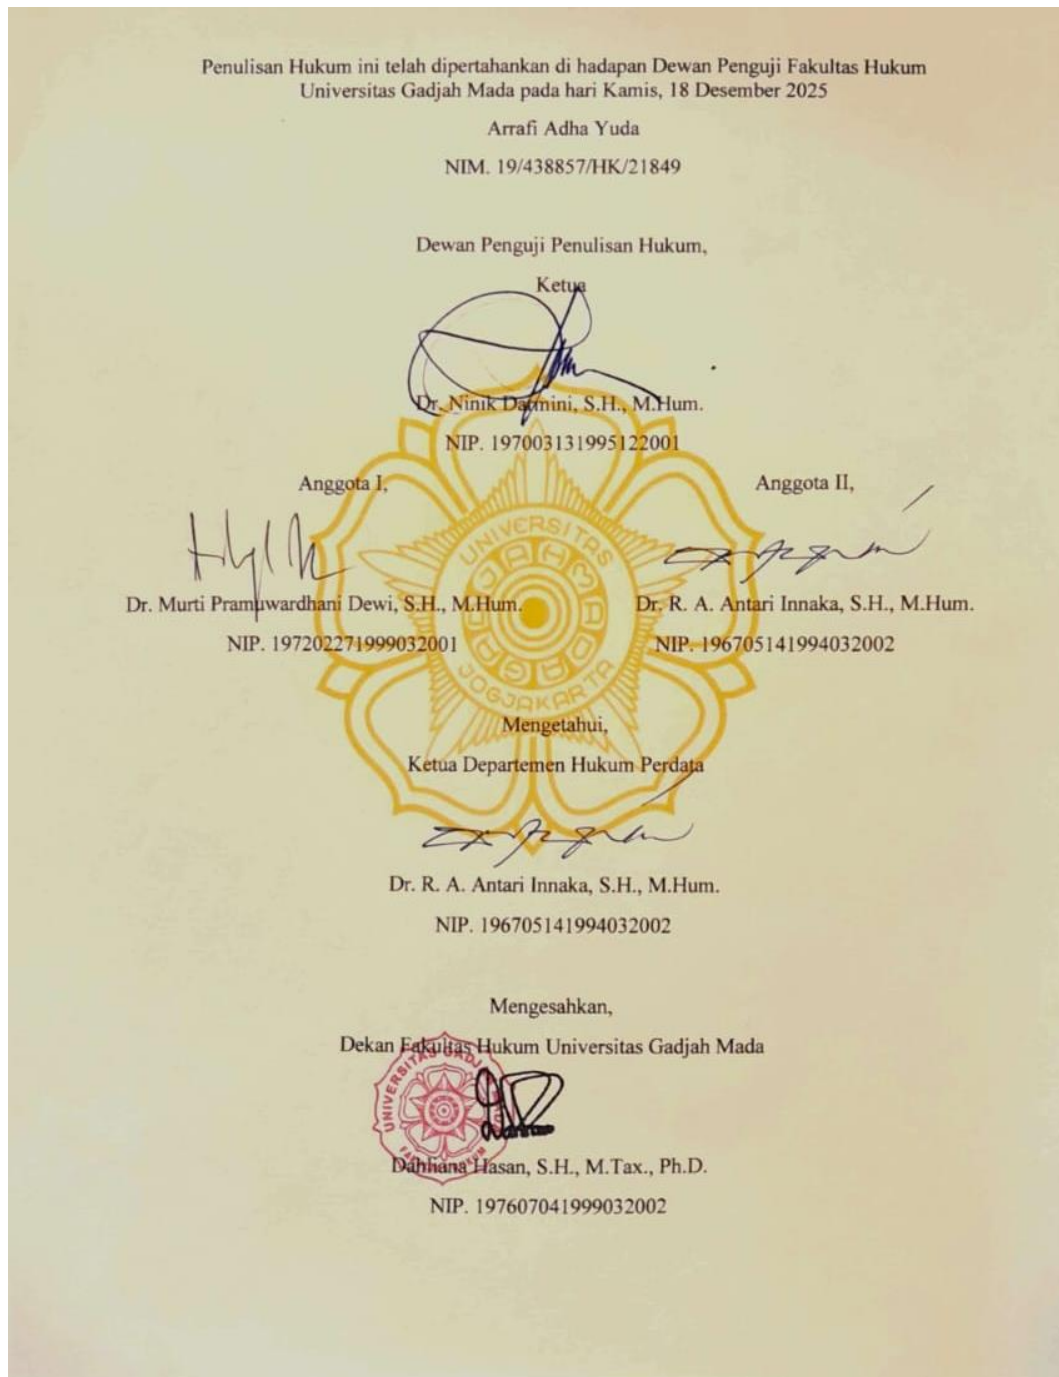 Penulisan Hukum ini telah dipertahankan di hadapan Dewan Penguji Fakultas Hukum
Universitas Gadjah Mada pada hari Kamis, 18 Desember 2025
Arrafi Adha Yuda
NIM. 19/438857/HK/21849
Dewan Penguji Penulisan Hukum,
Ketua
Dr. Ninik Darmini, S.H., M.Hum.
NIP. 197003131995122001
Anggota I,
Anggota II,
Dr. Murti Pramuwardhani Dewi, S.H., M.Hum.
Dr. R. A. Antari Innaka, S.H., M.Hum.
NIP. 197202271999032001
NIP. 196705141994032002
UNIVERSITAS
GADJAH MADA
JOGJAKARTA
Mengetahui,
Ketua Departemen Hukum Perdata
Dr. R. A. Antari Innaka, S.H., M.Hum.
NIP. 196705141994032002
Mengesahkan,
Dekan Fakultas Hukum Universitas Gadjah Mada
UNIVERSITAS GADJAH MADA
FAKULTAS HUKUM
Dahliana Hasan, S.H., M.Tax., Ph.D.
NIP. 197607041999032002